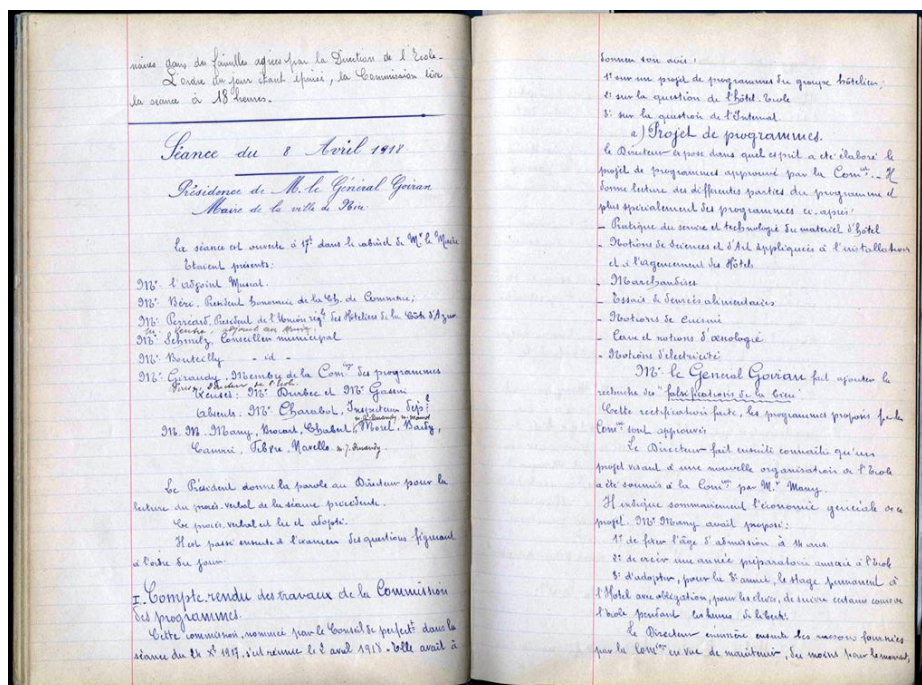 naires dans des familles agréées par la Direction de l'Ecole.
L'ordre du jour étant épuisé, la Commission lève
la séance à 18 heures.
Séance du 8 Avril 1918
Présidence de M. le Général Goiran
Maire de la ville de Nice
La séance est ouverte à 17h dans le cabinet de Mr le Maire
Etaient présents:
Mr l'adjoint Muscat.
Mr Béri, Président honoraire de la Ch. de Commerce;
Mr Perréard, Président de l'Union régle des Hôteliers de la Côte d'Azur
adjoint au Maire
Mr Schmitz, Conseiller municipal
Mr Bouteilly - id -
Mr Giraudy, Membre de la Comon des programmes
Directeur de l'Ecole
Excusés: Mr Durbec et Mr Gassin
Absents: Mr Charabot, Inspecteur dépal
M.M. Many, Brocart, Chabert, Morel, Bardy,
Fabre, Navello
Le Président donne la parole au Directeur pour la
lecture du procès-verbal de la séance précédente.
Ce procès-verbal est lu et adopté.
Il est passé ensuite à l'examen des questions figurant
à l'ordre du jour.
I. Compte-rendu des travaux de la Commission
des programmes.
Cette commission, nommée par le Conseil de perfectt dans la
séance du 24 Xe 1917, s'est réunie le 2 avril 1918. Elle avait à
donner son avis:
1° sur un projet de programmes du groupe hôtelier;
2° sur la question de l'hôtel-Ecole
3° sur la question de l'Internat
a) Projet de programmes.
le Directeur expose dans quel esprit a été élaboré le
projet de programmes approuvé par la Comon. Il
donne lecture des différentes parties du programme et
plus spécialement des programmes ci-après:
- Pratique du service et technologie du matériel d'hôtel
- Notions de Sciences et d'Art appliquées à l'installation
et à l'agencement des Hôtels
- Marchandises
- Essais de denrées alimentaires
- Notions de cuisine
- Cave et notions d'œnologie
- Notions d'électricité
Mr le Général Goiran fait ajouter la
recherche des "falsifications de la bière"
Cette rectification faite, les programmes proposés par la
Comon sont approuvés
Le Directeur fait ensuite connaître qu'un
projet visant à une nouvelle organisation de l'Ecole
a été soumis à la Comon par Mr Many.
Il indique sommairement l'économie générale de ce
projet. Mr Many avait proposé:
1° de fixer l'âge d'admission à 14 ans
2° de créer une année préparatoire annexée à l'Ecole
3° d'adopter, pour la 3e année, le stage permanent à
l'Hôtel avec obligation, pour les élèves, de suivre certains cours de
l'Ecole pendant les heures de liberté.
Le Directeur énumère ensuite les raisons fournies
par la Comon en vue de maintenir, du moins pour le moment,